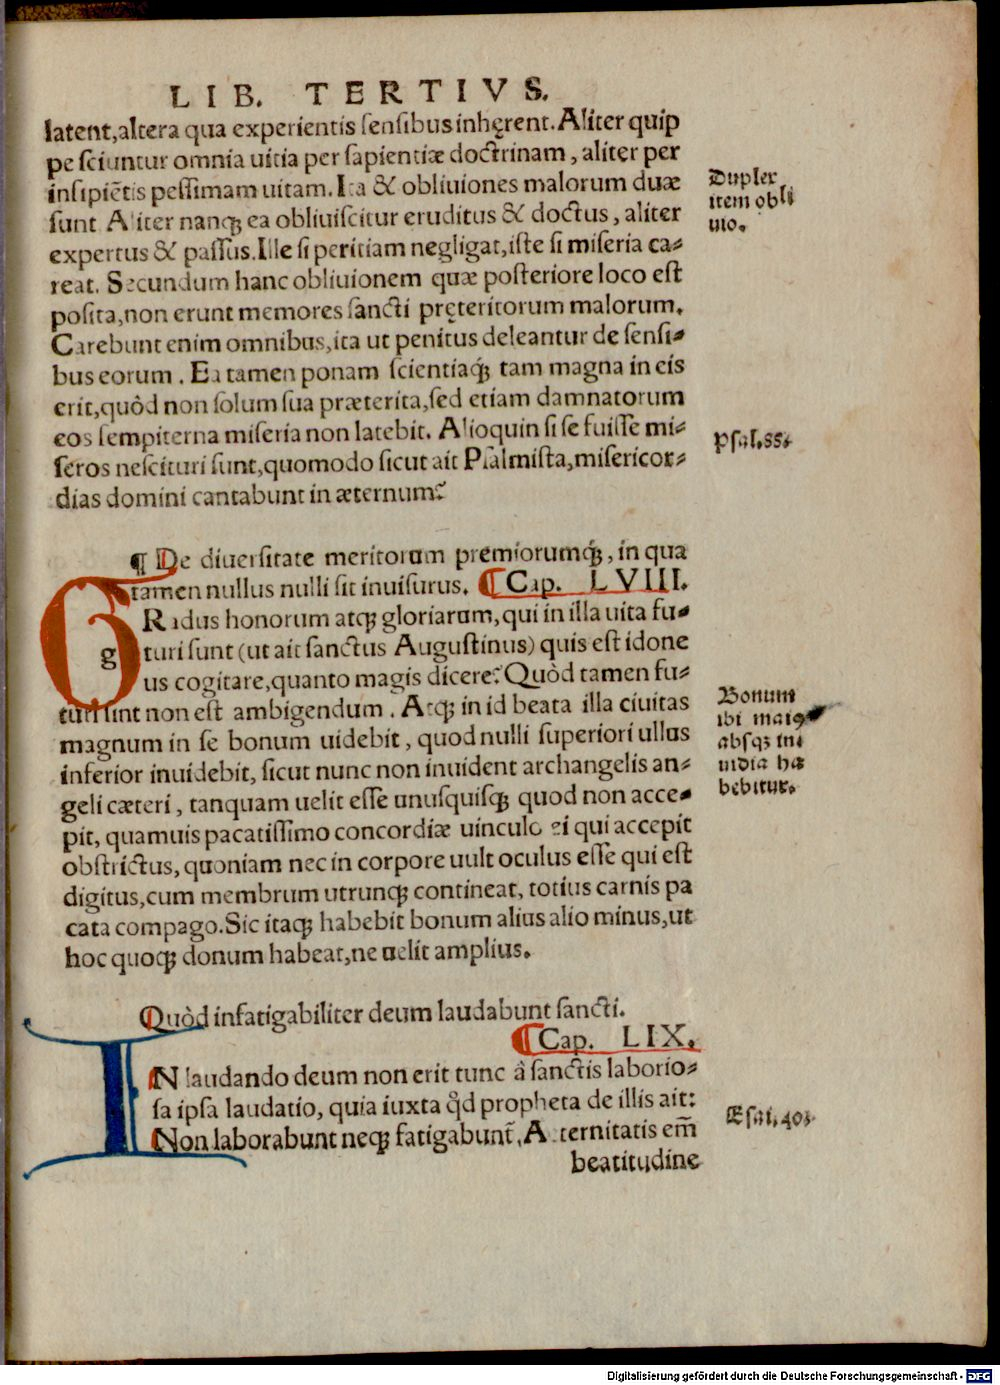 LIB. TERTIVS.
latent,altera qua experientis sensibus inhęrent. Aliter quip
pe sciuntur omnia uitia per sapientiæ doctrinam, aliter per
insipiẽtis pessimam uitam. Ita & obliuiones malorum duæ
sunt Aliter nanqꝫ ea obliuiscitur eruditus & doctus, aliter
expertus & passus. Ille si peritiam negligat, iste si miseria ca-
reat. Secundum hanc obliuionem quæ posteriore loco est
posita, non erunt memores sancti pręteritorum malorum.
Carebunt enim omnibus, ita ut penitus deleantur de sensi-
bus eorum. Ea tamen ponam scientiaqꝫ́ tam magna in eis
erit, quòd non solum sua præterita, sed etiam damnatorum
eos sempiterna miseria non latebit. Alioquin si se fuisse mi-
seros nescituri sunt, quomodo sicut ait Psalmista, misericor-
dias domini cantabunt in æternum?
Duplex
item obli
uio.
Psal.88.
¶ De diuersitate meritorum premiorumqꝫ́, in qua
tamen nullus nulli sit inuisurus. ¶ Cap. LVIII.
G g Radus honorum atqꝫ gloriarum, qui in illa uita fu-
turi sunt (ut ait sanctus Augustinus) quis est idone
us cogitare, quanto magis dicere? Quòd tamen fu-
turi sint non est ambigendum. Atqꝫ in id beata illa ciuitas
magnum in se bonum uidebit, quod nulli superiori ullus
inferior inuidebit, sicut nunc non inuident archangelis an-
geli cæteri, tanquam uelit esse unusquisqꝫ quod non acce-
pit, quamuis pacatissimo concordiæ uinculo ei qui accepit
obstrictus, quoniam nec in corpore uult oculus esse qui est
digitus, cum membrum utrunqꝫ contineat, totius carnis pa
cata compago. Sic itaqꝫ habebit bonum alius alio minus, ut
hoc quoqꝫ donum habeat, ne uelit amplius.
Bonum
ibi maiꝰ
absqꝫ in
uidia ha
bebitur.
Quòd infatigabiliter deum laudabunt sancti.
¶ Cap. LIX.
I N laudando deum non erit tunc à sanctis laborio-
sa ipsa laudatio, quia iuxta q̃d propheta de illis ait:
Non laborabunt neqꝫ fatigabunt̃, Aeternitatis em̃
beatitudine
Esai.40.
Digitalisierung gefördert durch die Deutsche Forschungsgemeinschaft - DFG